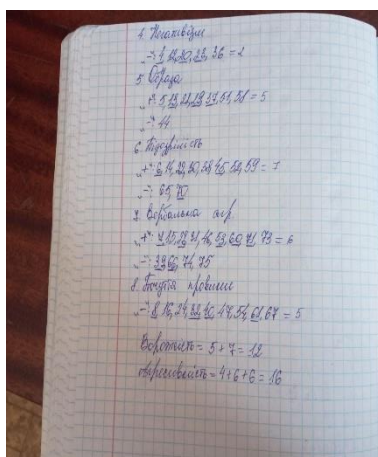 4. Негативізм
"-": 4, 12, 20, 23, 36 = 2
5. Образа
"+": 5, 13, 21, 29, 37, 51, 58 = 5
"-": 44
6. Підозрілість
"+": 6, 14, 22, 30, 38, 45, 52, 59 = 7
"-": 65, 70
7. Вербальна агр.
"+": 7, 15, 23, 31, 46, 53, 60, 71, 73 = 6
"-": 39, 66, 74, 75
8. Почуття провини
"-": 8, 16, 24, 32, 40, 47, 54, 61, 67 = 5
Ворожість = 5 + 7 = 12
агресивність = 4 + 6 + 6 = 16